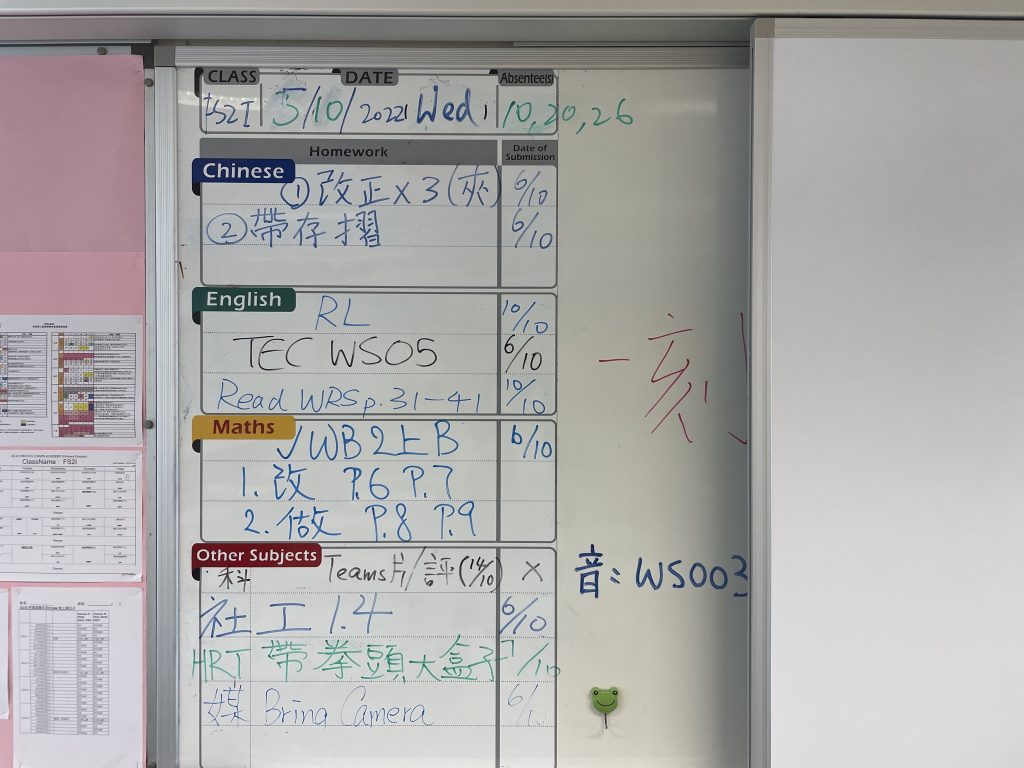 CLASS DATE Absentee(s)
FS2I 5/10/2022 Wed 10, 20, 26
Homework Date of Submission
Chinese
① 改正 x 3 (夾) 6/10
② 帶存摺 6/10
English
RL 10/10
TEC WS05 6/10
Read WRS p.31-41 10/10
Maths
JWB 2上B 6/10
1. 改 P.6 P.7
2. 做 P.8 P.9
Other Subjects
科 Teams片/評(14/10) X
社 工 1.4 6/10
HRT 帶拳頭大盒子 7/10
媒 Bring Camera 6/
一刻
音: WS003
ClassName: FS2I